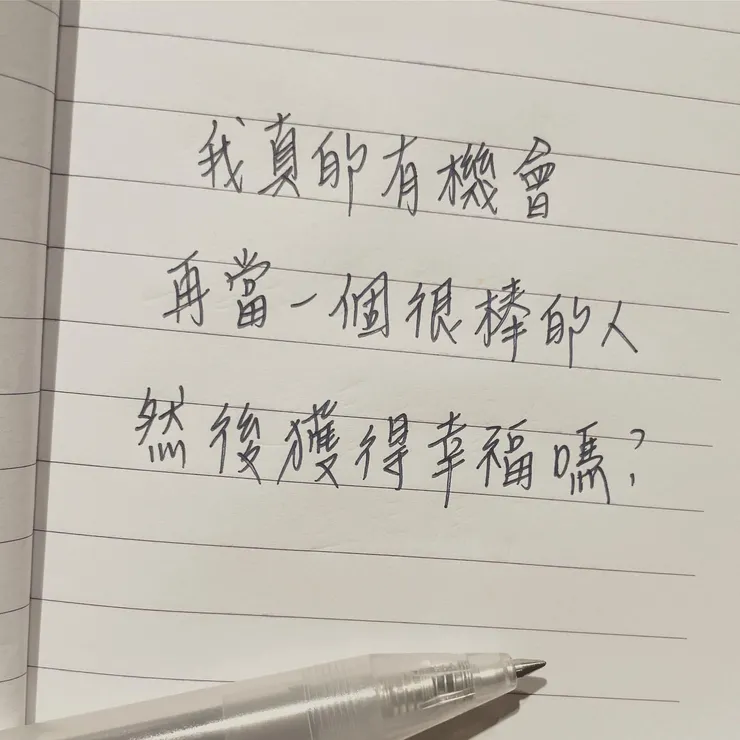 我真的有機會
再當一個很棒的人
然後獲得幸福嗎?